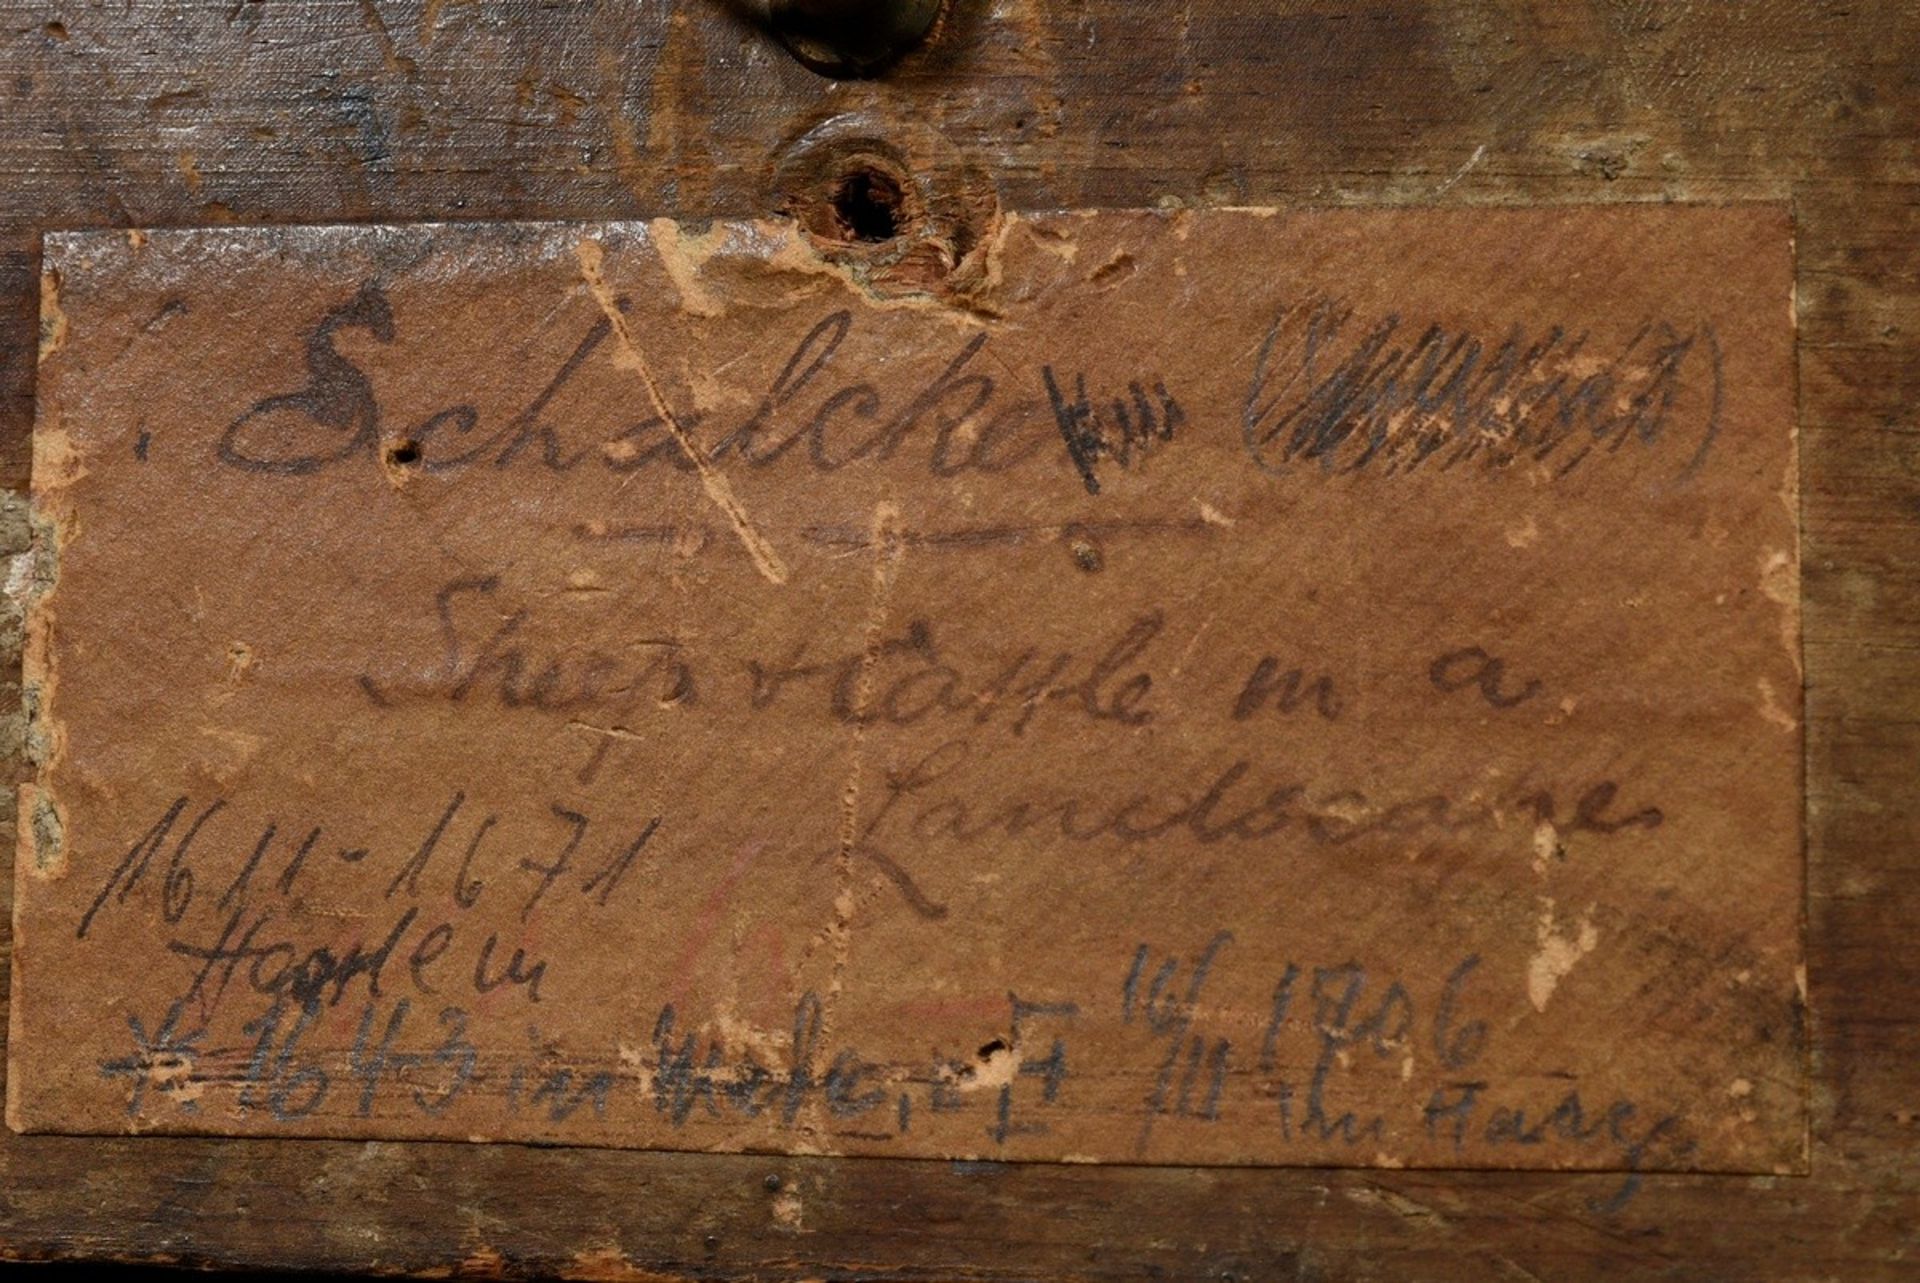 Schalcke
Sheep & Cattle in a
Landscape
1611-1671
Haarlem
1643 in 16/ 1706
in Haag